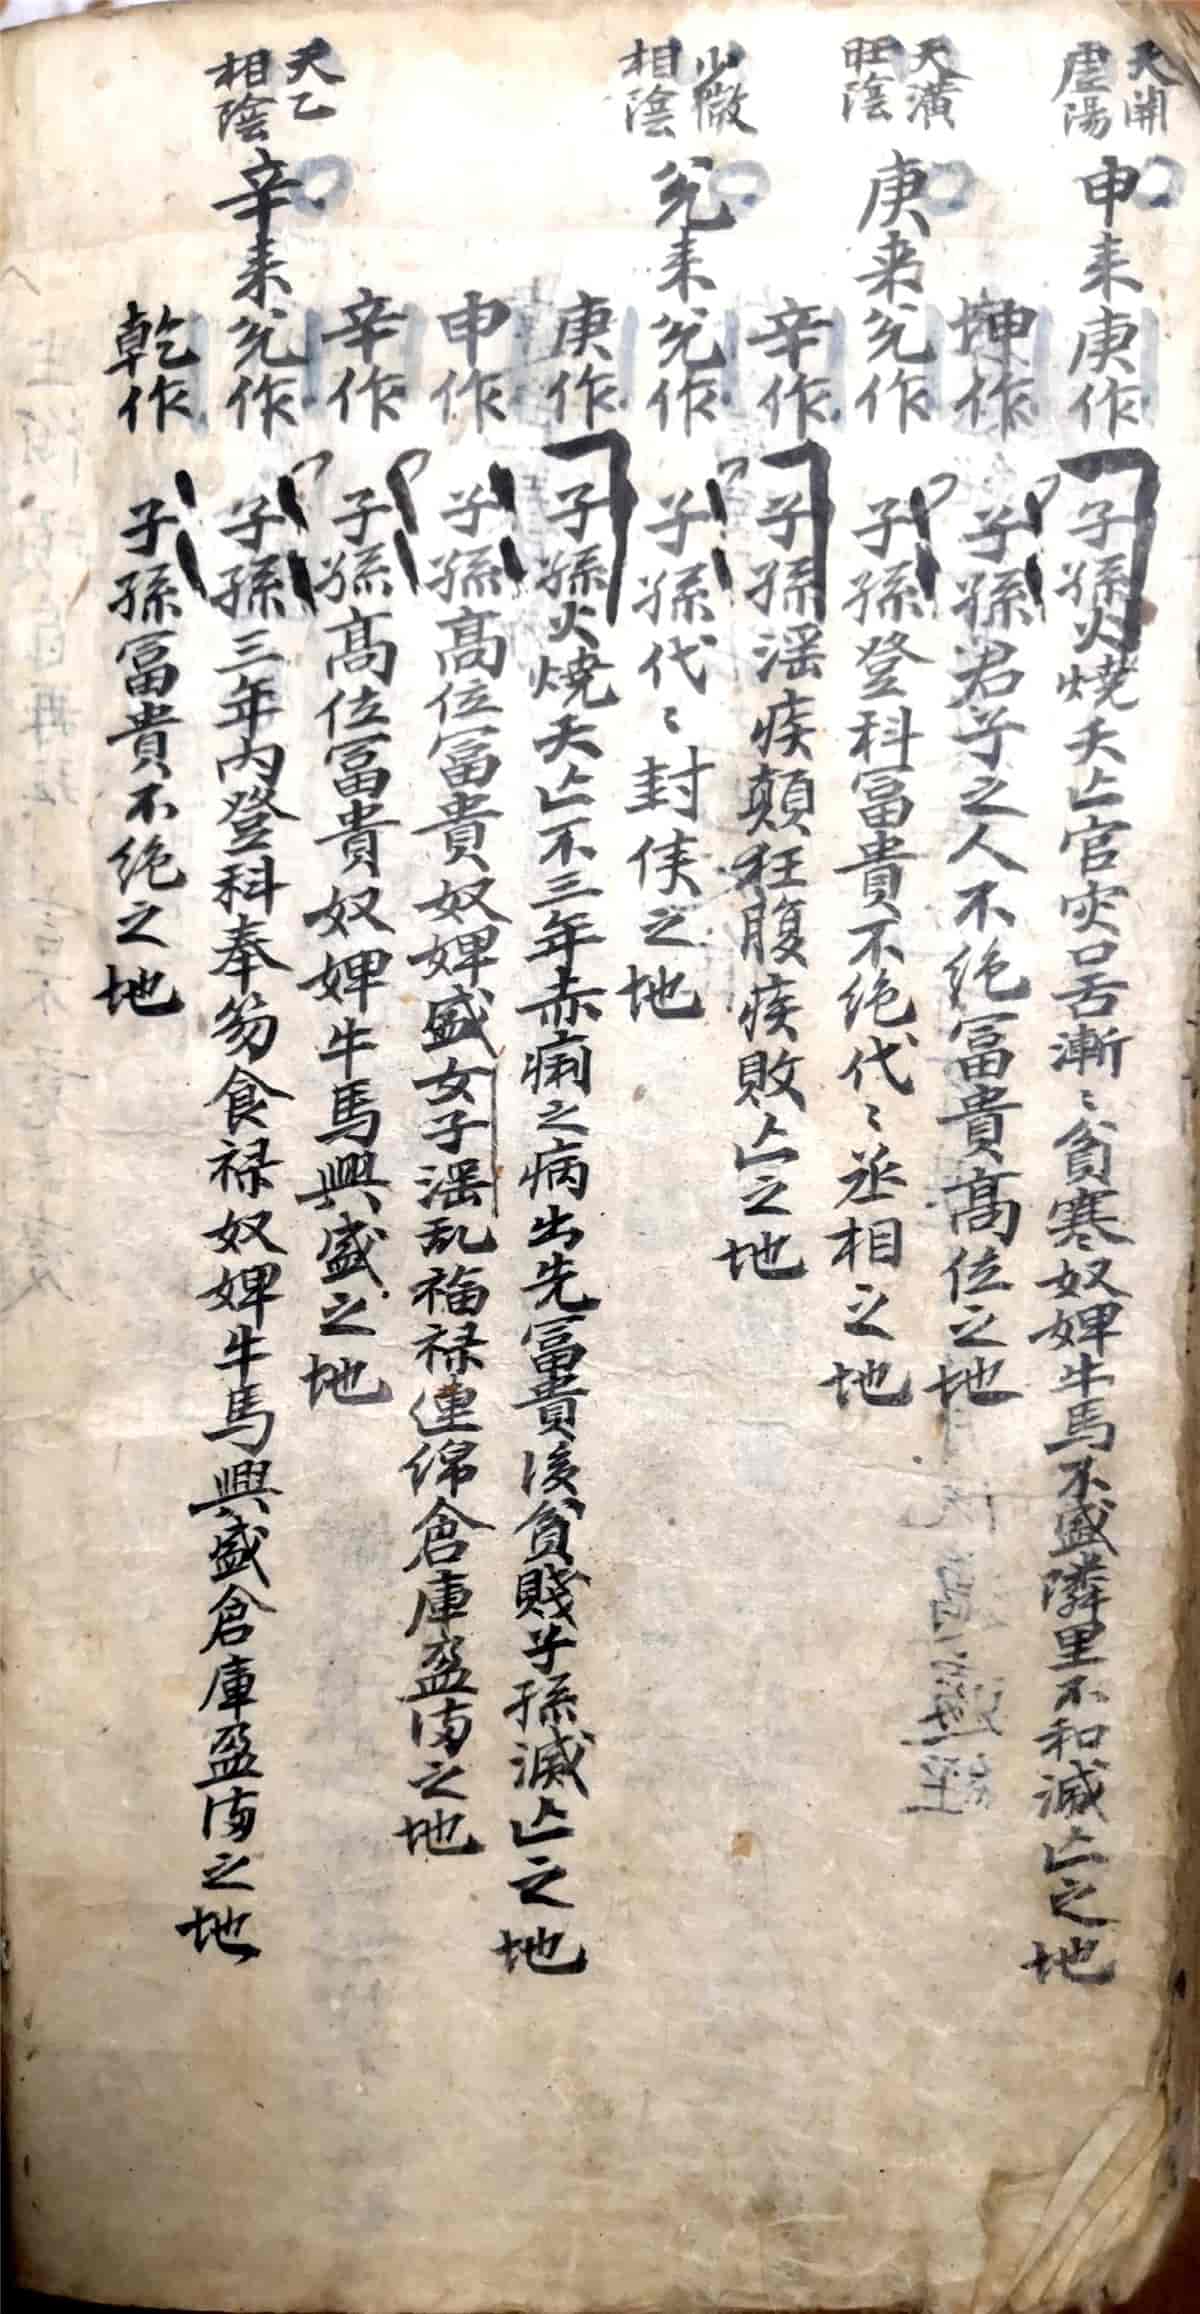 天開
虛陽
申来庚作 子孫火燒夭亡官灾口舌漸〻貧寒奴婢牛馬不盛隣里不和滅亡之地
坤作 子孫君子之人不绝冨貴髙位之地
天潢
旺陰
庚来兊作 子孫登科冨貴不绝代〻丞相之地
辛作 子孫滛疾顛狂腹疾敗亡之地
少微
相陰
兊来兊作 子孫代〻封侯之地
庚作 子孫火燒夭亡不三年赤痢之病出先冨貴後貧賤子孫滅亡之地
申作 子孫髙位冨貴奴婢盛女子滛乱福禄連綿倉庫盈満之地
辛作 子孫髙位冨貴奴婢牛馬興盛之地
天乙
相陰
辛来兊作 子孫三年內登科奉笏食禄奴婢牛馬興盛倉庫盈満之地
乾作 子孫冨貴不绝之地